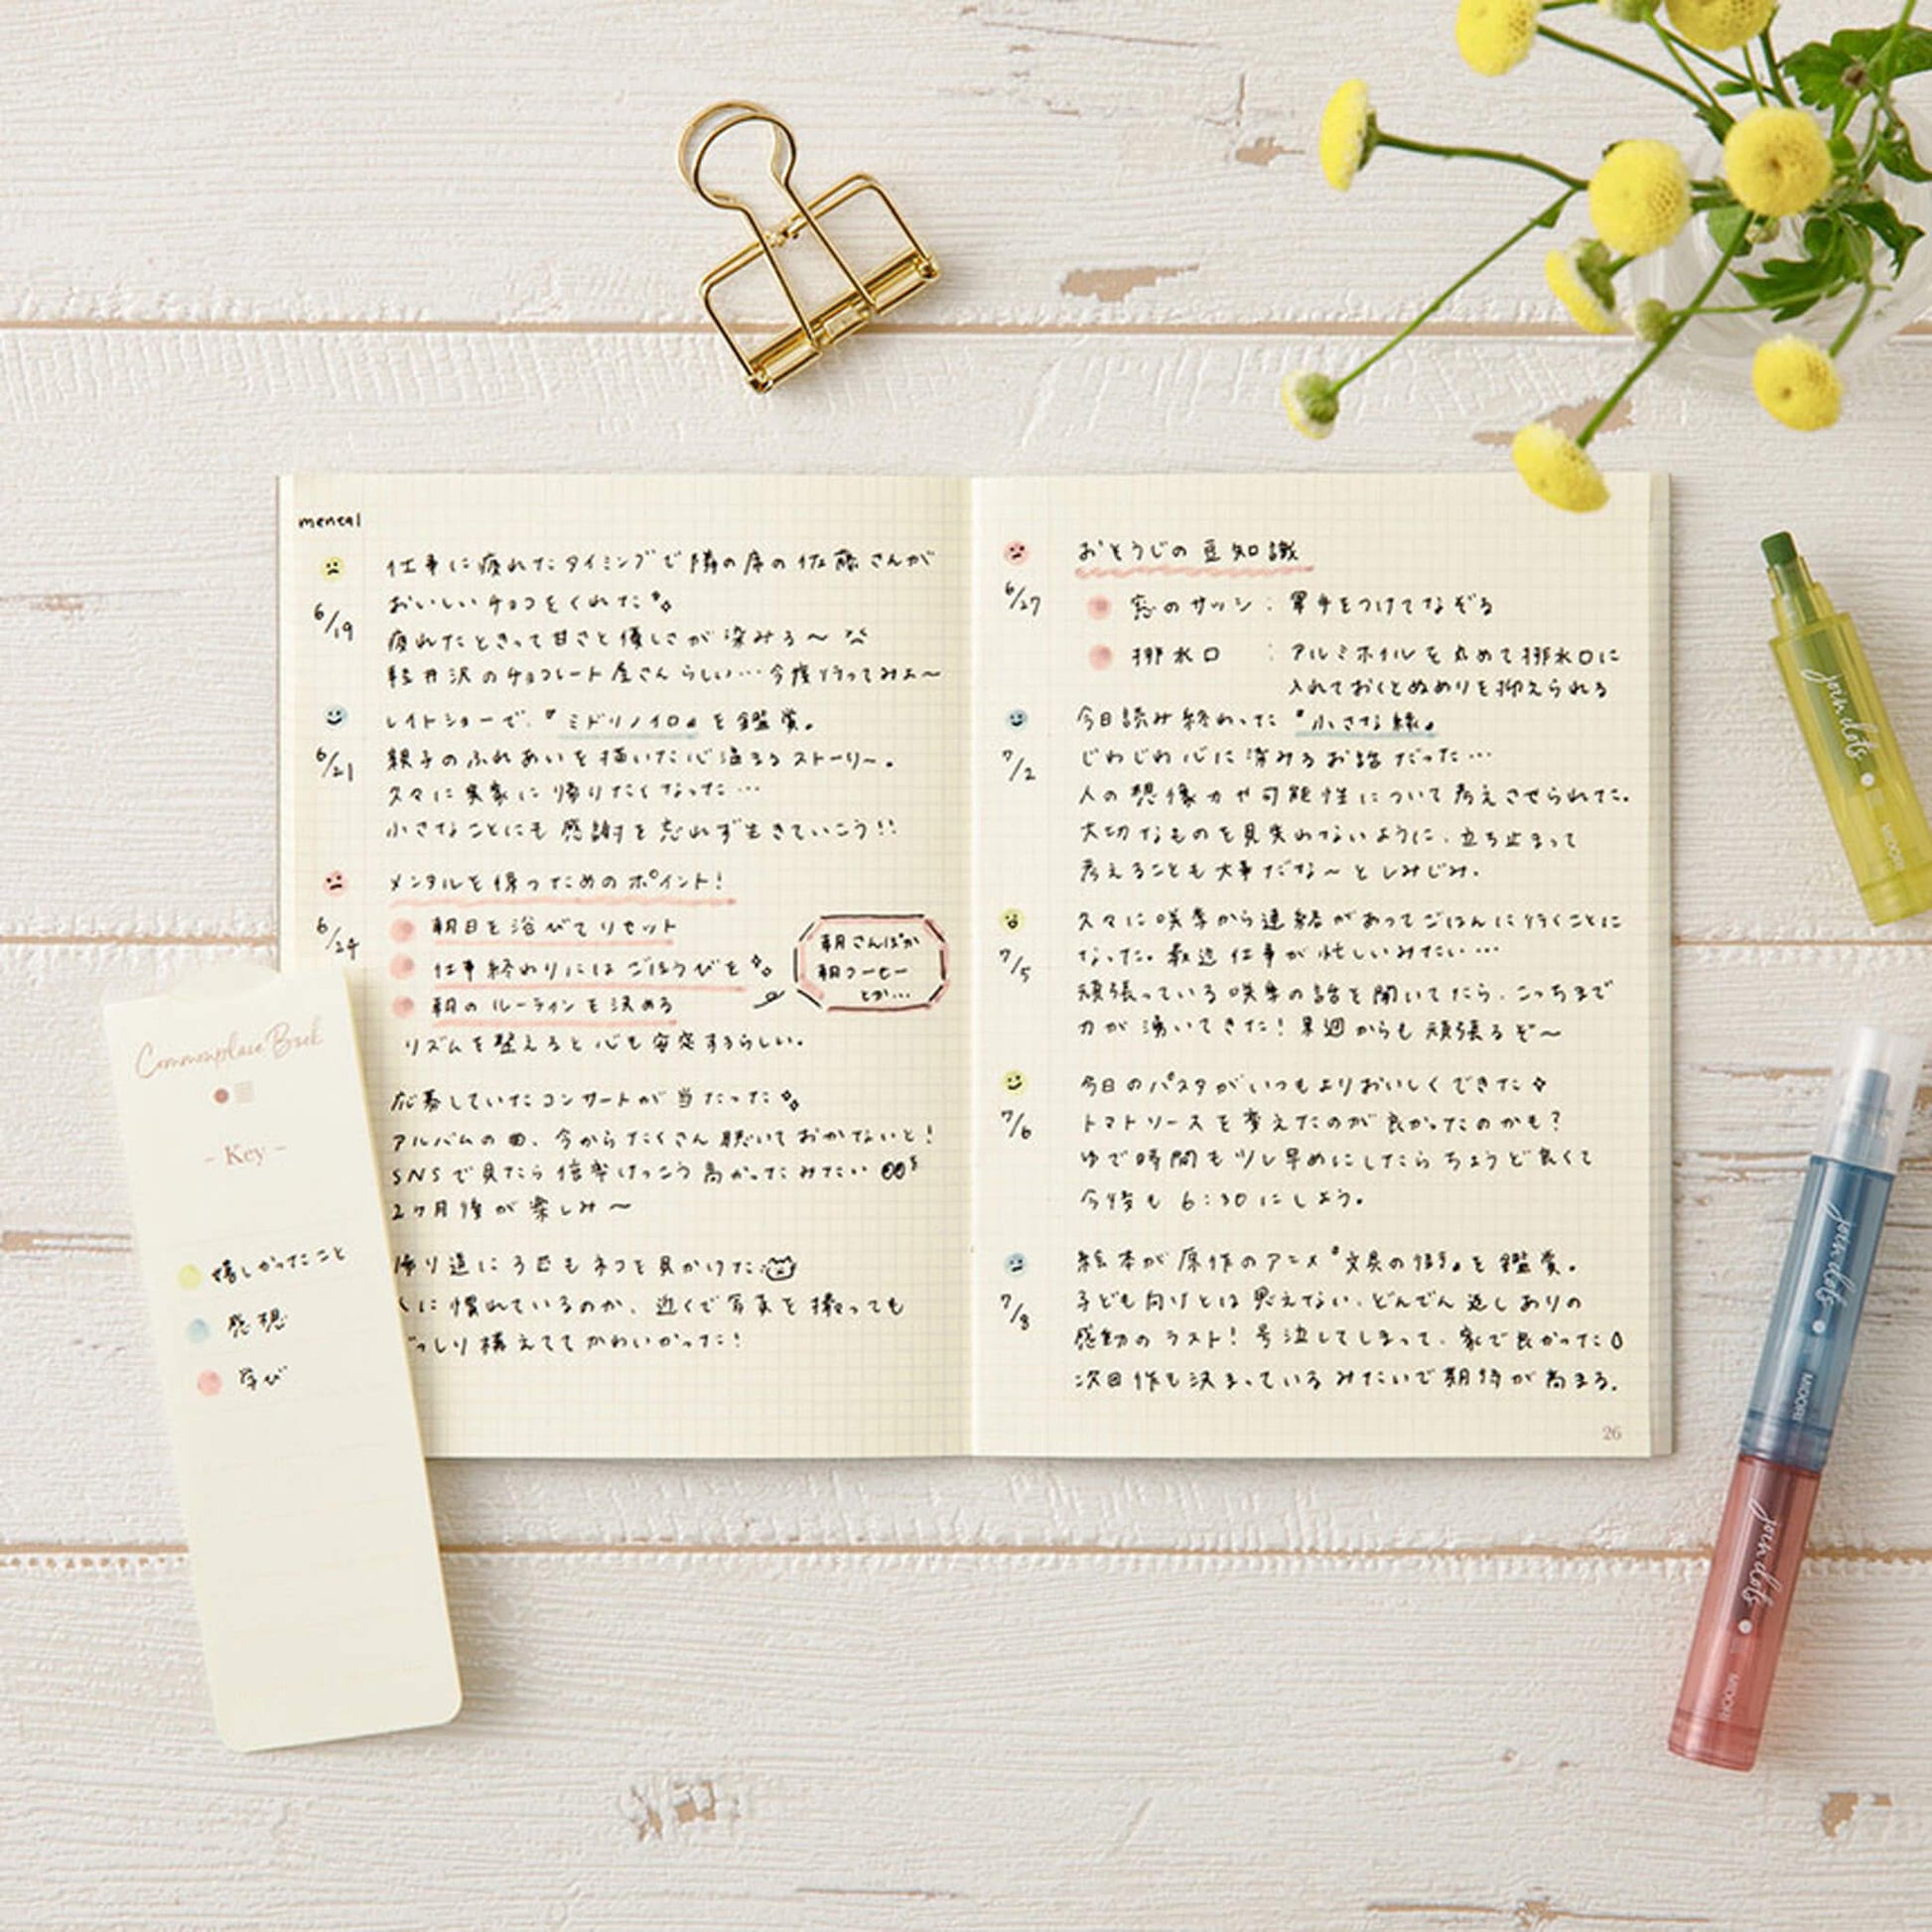 mental
6/19
仕事に疲れたタイミングで隣の席の佐藤さんが
おいしいチョコをくれた
疲れたときって甘さと優しさが染みる〜
軽井沢のチョコレート屋さんらしい…今度行ってみよ〜
6/21
レイトショーで、『ミドリノイロ』を鑑賞。
親子のふれあいを描いた心温まるストーリー。
久々に実家に帰りたくなった…
小さなことにも感謝を忘れず生きていこう!!
6/24
メンタルを保つためのポイント!
朝日を浴びてリセット
仕事終わりにはごほうびを
朝のルーティンを決める
朝さんぽか
朝コーヒー
とか…
リズムを整えると心も安定するらしい。
応募していたコンサートが当たった
アルバムの曲、今からたくさん聴いておかないと!
SNSで見たら倍率けっこう高かったみたい
2ヶ月後が楽しみ〜
帰り道に3匹もネコを見かけた
に慣れているのか、近くで写真を撮っても
っしり構えててかわいかった!
Commonplace Book
- Key -
嬉しかったこと
感想
学び
6/27
おそうじの豆知識
窓のサッシ：軍手をつけてなぞる
排水口：アルミホイルを丸めて排水口に
入れておくとぬめりを抑えられる
7/2
今日読み終わった『小さな縁』
じわじわ心に染みるお話だった…
人の想像力や可能性について考えさせられた。
大切なものを見失わないように、立ち止まって
考えることも大事だな〜としみじみ。
7/5
久々に咲季から連絡があってごはんに行くことに
なった。最近仕事が忙しいみたい…
頑張っている咲季の話を聞いてたら、こっちまで
力が湧いてきた!来週からも頑張るぞ〜
7/6
今日のパスタがいつもよりおいしくできた
トマトソースを変えたのが良かったのかも?
ゆで時間も少し早めにしたらちょうど良くて
今後も6:30にしよう。
7/8
絵本が原作のアニメ『文具の街』を鑑賞。
子ども向けとは思えない、どんでん返しありの
感動のラスト!号泣してしまって、家で良かった
次回作も決まっているみたいで期待が高まる。
26
joindots
MIDORI
joindots
MIDORI
joindots
MIDORI